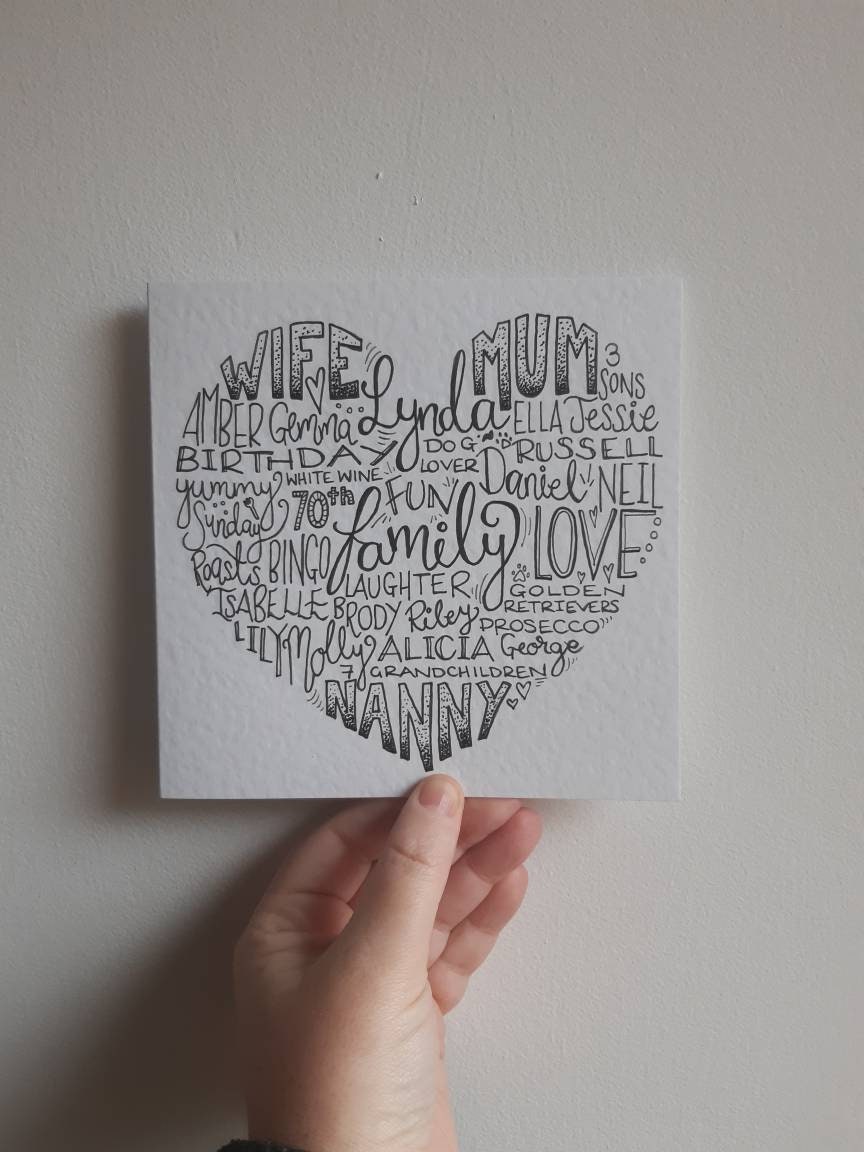 WIFE MUM 3 SONS
AMBER Gemma Lynda ELLA Jessie
BIRTHDAY DOG LOVER RUSSELL
yummy WHITE WINE Daniel NEIL
Sunday 70th FUN
Roasts BINGO family LOVE
LAUGHTER GOLDEN RETRIEVERS
ISABELLE BRODY Riley PROSECCO
LILY Molly ALICIA George
7 GRANDCHILDREN
NANNY